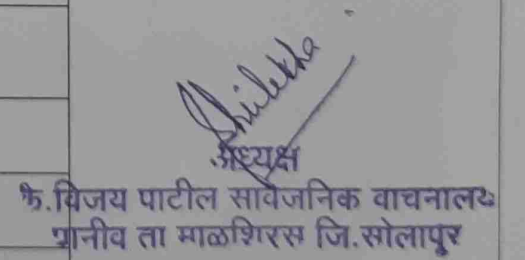 Shilekha
अध्यक्ष
कै.विजय पाटील सार्वजनिक वाचनालय
शानीव ता माळशिरस जि.सोलापूर